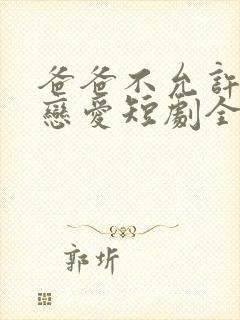 爸爸不允許
戀愛短劇全
郭圻